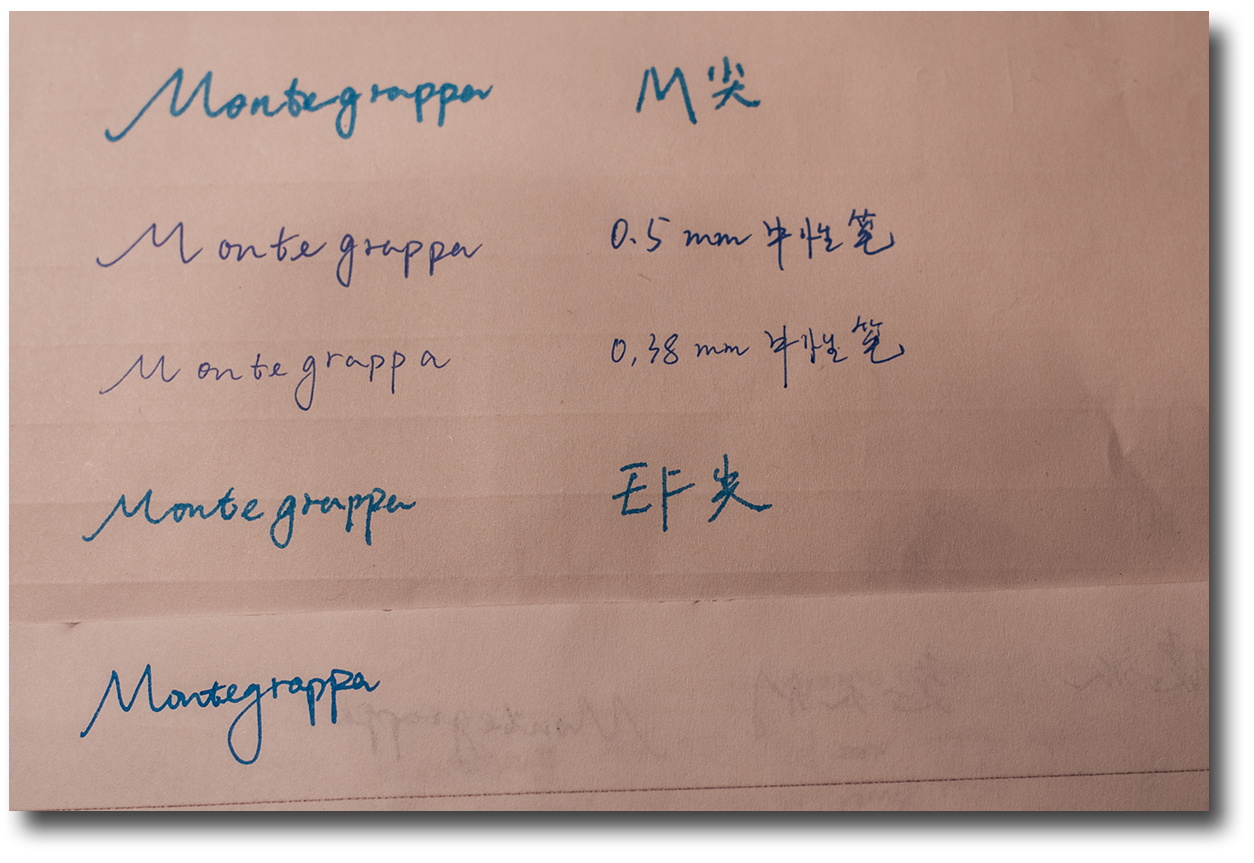 Montegrappa M尖
Montegrappa 0.5mm 中性笔
Montegrappa 0.38mm 中性笔
Montegrappa EF尖
Montegrappa